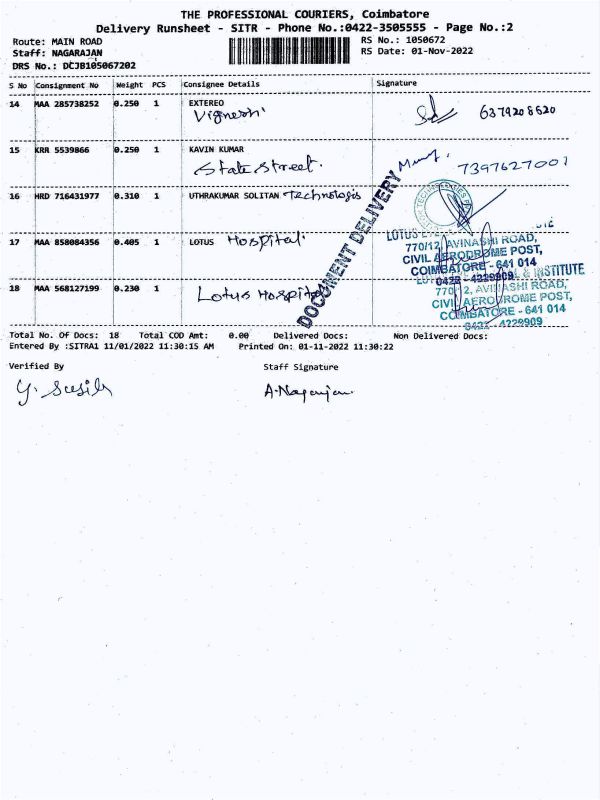 THE PROFESSIONAL COURIERS, Coimbatore
Delivery Runsheet - SITR - Phone No.:0422-3505555 - Page No.:2
Route: MAIN ROAD
RS No.: 1050672
Staff: NAGARAJAN
RS Date: 01-Nov-2022
DRS No.: DCJB105067202
S No Consignment No Weight PCS Consignee Details Signature
14 MAA 285738252 0.250 1 EXTEREO
Vignesh 6379208620
15 KRR 5539866 0.250 1 KAVIN KUMAR
State Street. 7397627001
16 HRD 716431977 0.310 1 UTHRAKUMAR SOLITAN Technologis
17 MAA 858084356 0.405 1 LOTUS Hospital
LOTUS
770/12, AVINASHI ROAD,
CIVIL AERODROME POST,
COIMBATORE - 641 014
0422 - 4229909
18 MAA 568127199 0.230 1 Lotus Hospital
& INSTITUTE
770/12, AVINASHI ROAD,
CIVIL AERODROME POST,
COIMBATORE - 641 014
0422 4229909
DOCUMENT DELIVERY
Total No. Of Docs: 18 Total COD Amt: 0.00 Delivered Docs: Non Delivered Docs:
Entered By :SITRA1 11/01/2022 11:30:15 AM Printed On: 01-11-2022 11:30:22
Verified By Staff Signature
Y. Susila A.Nagarajan